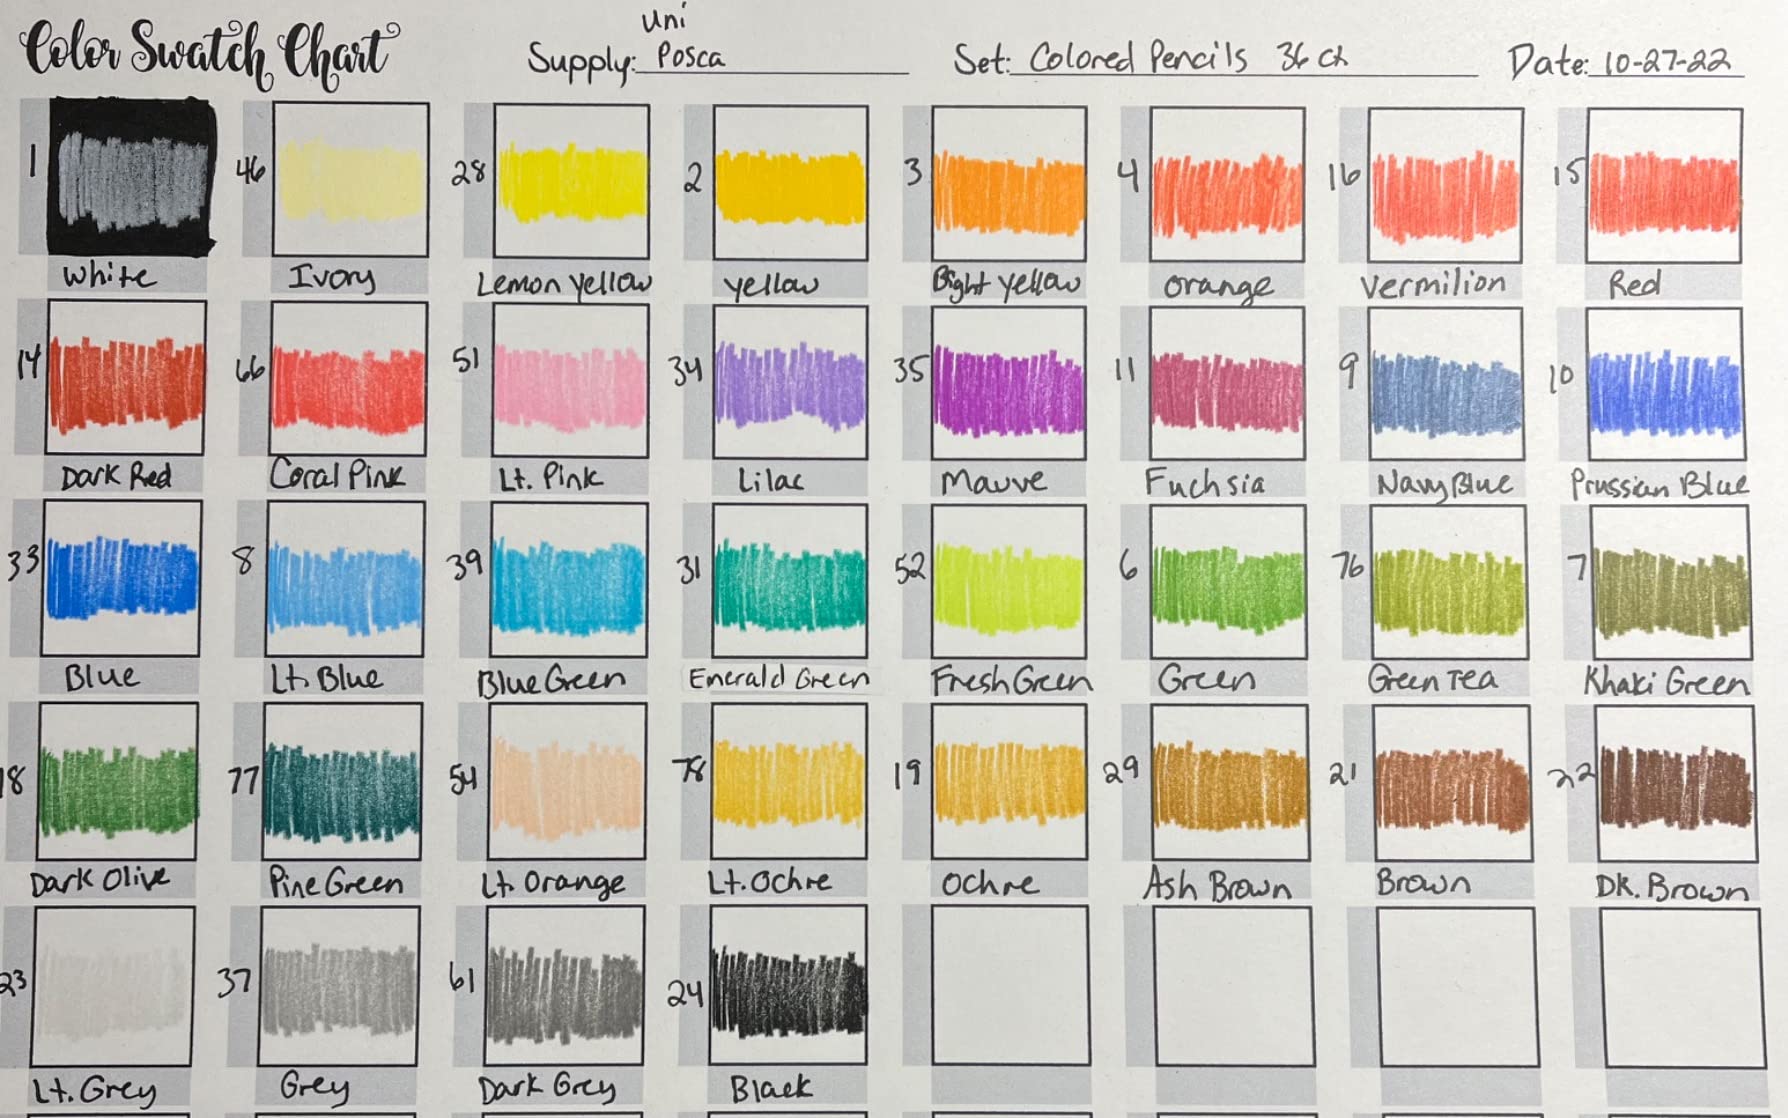 Color Swatch Chart
Supply: Uni Posca
Set: Colored Pencils 36 ct
Date: 10-27-22
1 46 28 2 3 4 16 15
White Ivory Lemon Yellow Yellow Bight Yellow Orange Vermilion Red
14 66 51 34 35 11 9 10
Dark Red Coral Pink Lt. Pink Lilac Mauve Fuchsia Navy Blue Prussian Blue
33 8 39 31 52 6 76 7
Blue Lt. Blue Blue Green Emerald Green Fresh Green Green Green Tea Khaki Green
18 77 54 78 19 29 21 22
Dark Olive Pine Green Lt. Orange Lt. Ochre Ochre Ash Brown Brown DK. Brown
23 37 61 24
Lt. Grey Grey Dark Grey Black